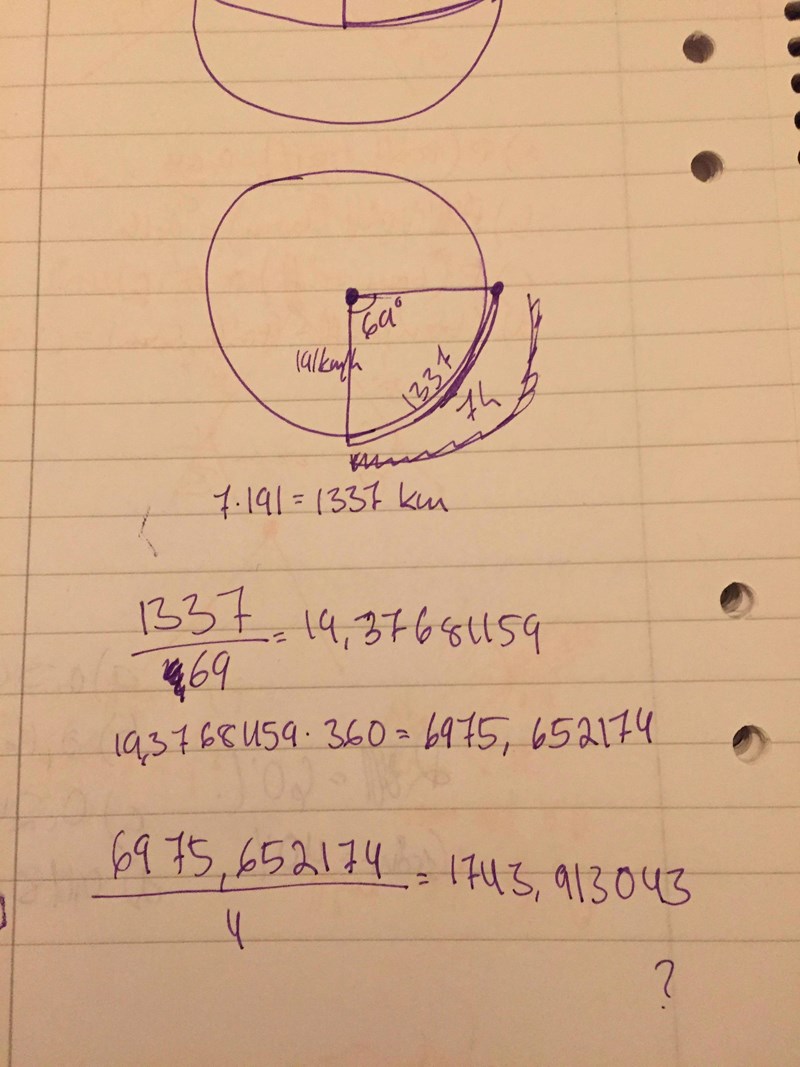 69°
191km/h
1337
7h
7·191=1337 km
1337
69
= 19,37681159
19,37681159·360=6975,652174
6975,652174
4
= 1743,913043
?